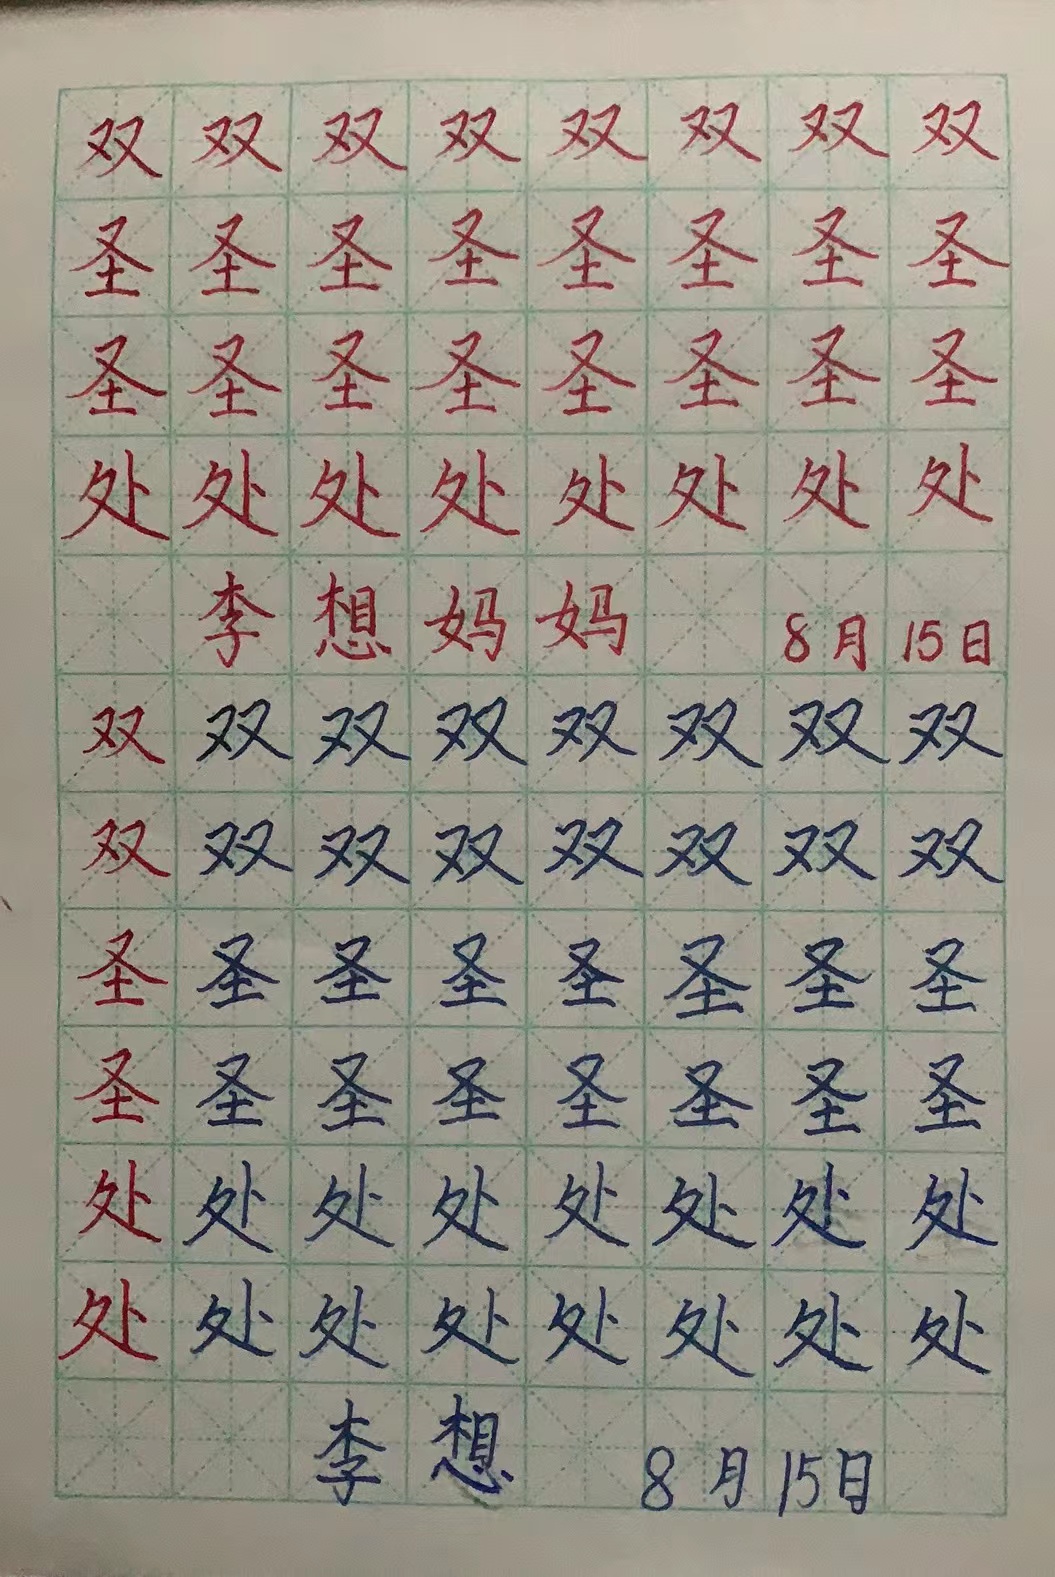 双 双 双 双 双 双 双 双
圣 圣 圣 圣 圣 圣 圣 圣
圣 圣 圣 圣 圣 圣 圣 圣
处 处 处 处 处 处 处 处
李 想 妈 妈 8月 15日
双 双 双 双 双 双 双 双
双 双 双 双 双 双 双 双
圣 圣 圣 圣 圣 圣 圣 圣
圣 圣 圣 圣 圣 圣 圣 圣
处 处 处 处 处 处 处 处
处 处 处 处 处 处 处 处
李 想 8月 15日